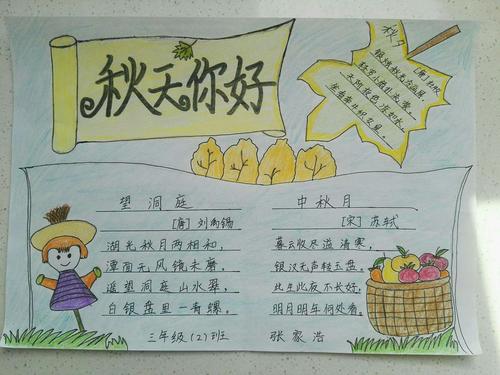 秋天你好
秋夕
[唐]杜牧
银烛秋光冷画屏，
轻罗小扇扑流萤。
天阶夜色凉如水，
坐看牵牛织女星。
望洞庭
[唐]刘禹锡
湖光秋月两相和，
潭面无风镜未磨。
遥望洞庭山水翠，
白银盘里一青螺。
中秋月
[宋]苏轼
暮云收尽溢清寒，
银汉无声转玉盘。
此生此夜不长好，
明月明年何处看。
三年级(2)班
张家浩